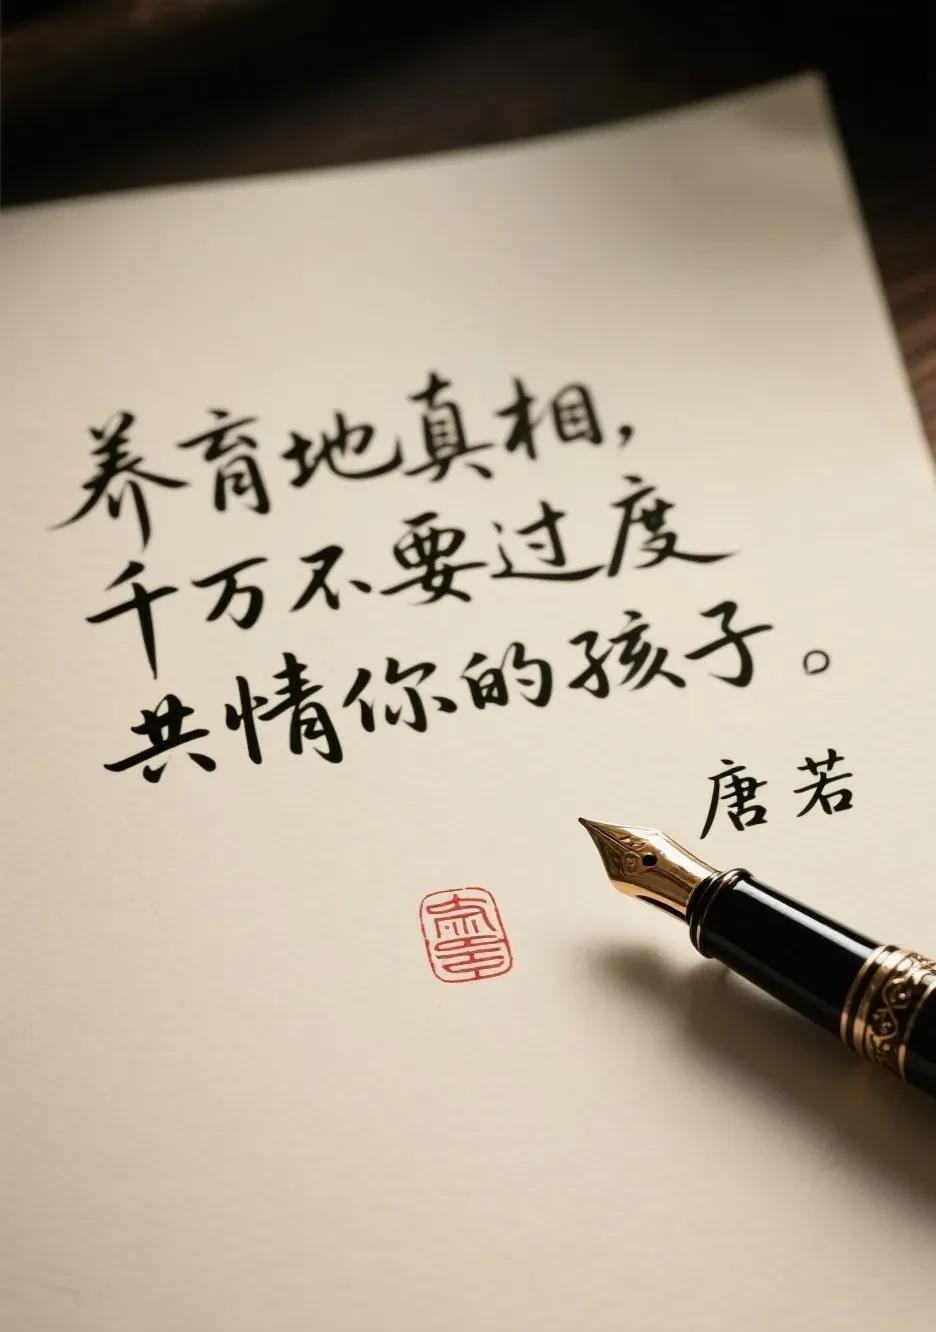 养育地真相，
千万不要过度
共情你的孩子。
唐若